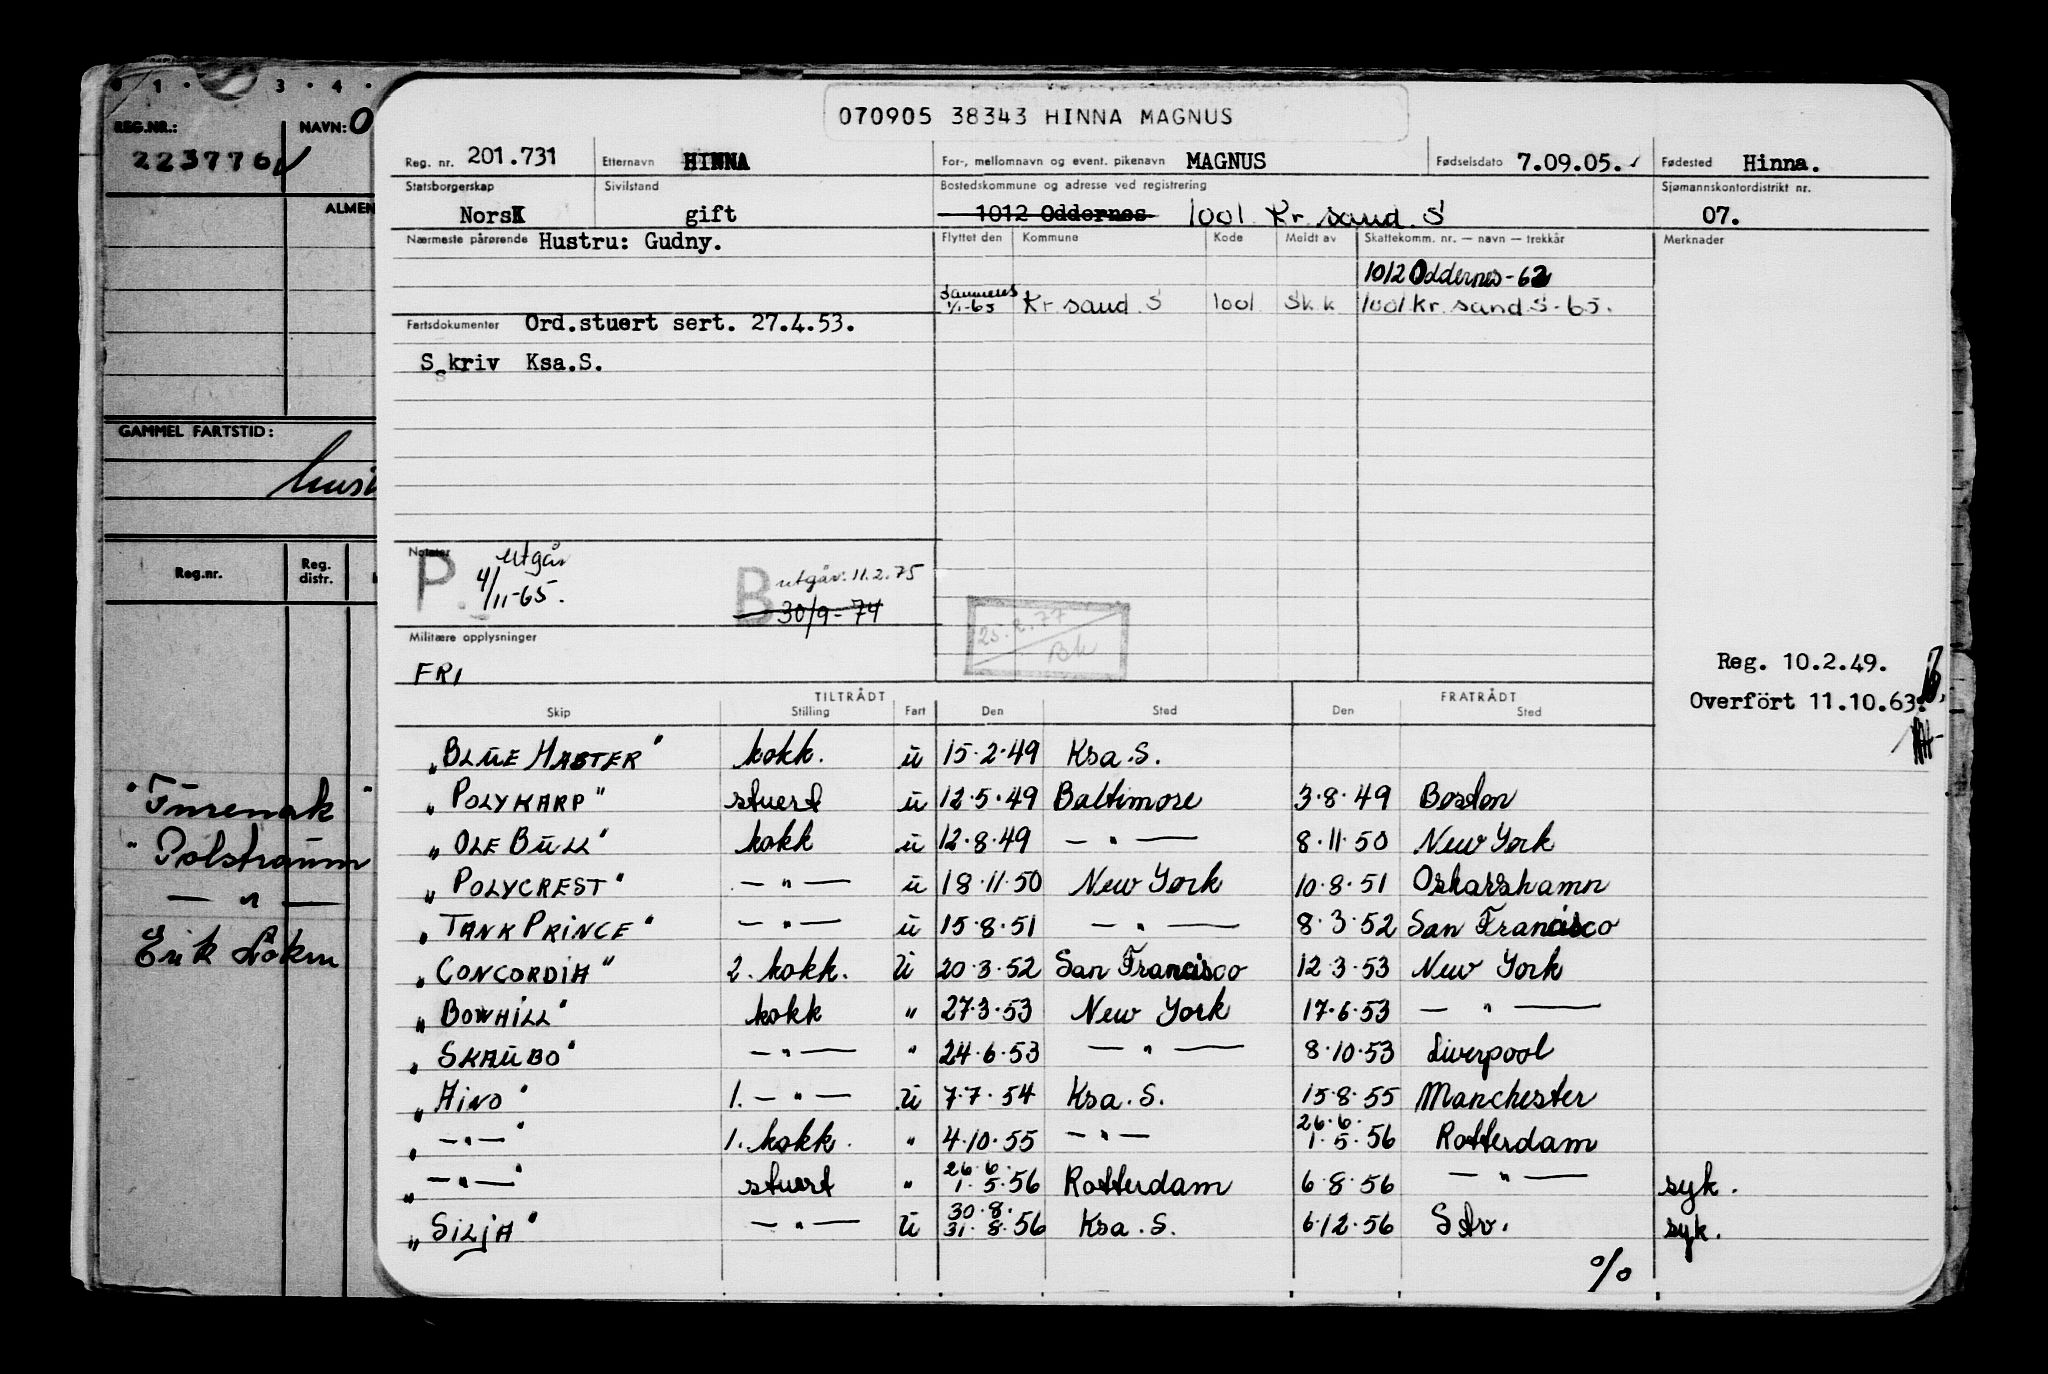 1 . 3 . 4 .
REG.NR.: NAVN: O
223776
ALMEN
GAMMEL FARTSTID:
Reg.nr. Reg. distr.
"Polstraum
— " —
070905 38343 HINNA MAGNUS
Reg. nr. 201.731 Etternavn HINNA For-, mellomnavn og event. pikenavn MAGNUS Fødselsdato 7.09.05. Fødested Hinna.
Statsborgerskap Sivilstand Bostedskommune og adresse ved registrering Sjømannskontordistrikt nr.
Norsk gift 1012 Oddernes 1001 Kr. sand. S 07.
Nærmeste pårørende Hustru: Gudny. Flyttet den Kommune Kode Meldt av Skattekomm. nr. — navn — trekkår Merknader
1012 Oddernes-62
Sammens 1/1-65 Kr sand. S 1001 Sk.k 1001 kr. sand S-65.
Fartsdokumenter Ord.stuert sert. 27.4.53.
S skriv Ksa.S.
Notater
P. utgår 4/11-65.
B utgår: 11.2.75
30/9-74
25.2.77
Bk
Militære opplysninger
FRI
Reg. 10.2.49.
Overfört 11.10.63.
TILTRÅDT FRATRÅDT
Skip Stilling Fart Den Sted Den Sted
"BLUE MASTER" kokk. u 15.2.49 Ksa.S.
"POLYKARP" stuert u 12.5.49 Baltimore 3.8.49 Boston
"OLE BULL" kokk u 12.8.49 — " — 8.11.50 New York
"POLYCREST" — " — u 18.11.50 New York 10.8.51 Oskarshamn
"TANK PRINCE" — " — u 15.8.51 — " — 8.3.52 San Francisco
"CONCORDIA" 2. kokk. U 20.3.52 San Francisco 12.3.53 New York
"BOWHILL" kokk " 27.3.53 New York 17.6.53 — " —
"SKAUBO" — " — " 24.6.53 — " — 8.10.53 Liverpool
"HINO" 1. — " — U 7.7.54 Ksa.S. 15.8.55 Manchester
"— " —" 1. kokk. " 4.10.55 — " — 26.6. 1.5.56 Rotterdam
"— " —" stuert " 26.6. 1.5.56 Rotterdam 6.8.56 — " — syk.
"SILJA" — " — U 30.8. 31.8.56 Ksa.S. 6.12.56 Stv. syk.
%